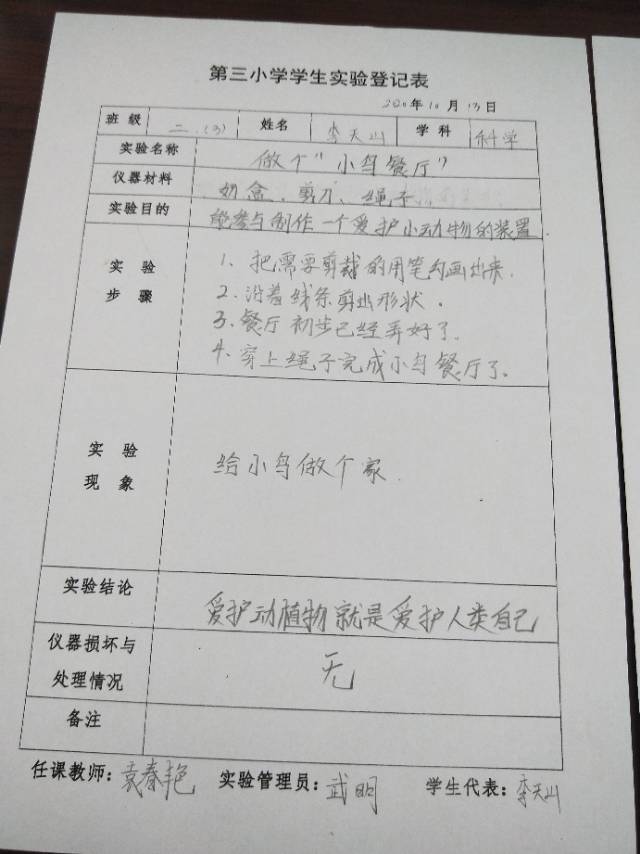 第三小学学生实验登记表
2020年10月13日
班级 二.(3) 姓名 李天山 学科 科学
实验名称 做个“小鸟餐厅”
仪器材料 奶盒、剪刀、绳子
实验目的 能参与制作一个爱护小动物的装置.
实验步骤
1、把需要剪裁的用笔勾画出来.
2、沿着线条剪出形状.
3、餐厅初步已经弄好了.
4、穿上绳子完成小鸟餐厅了.
实验现象 给小鸟做个家.
实验结论 爱护动植物就是爱护人类自己
仪器损坏与处理情况 无
备注
任课教师:袁春艳 实验管理员:武明 学生代表:李天山